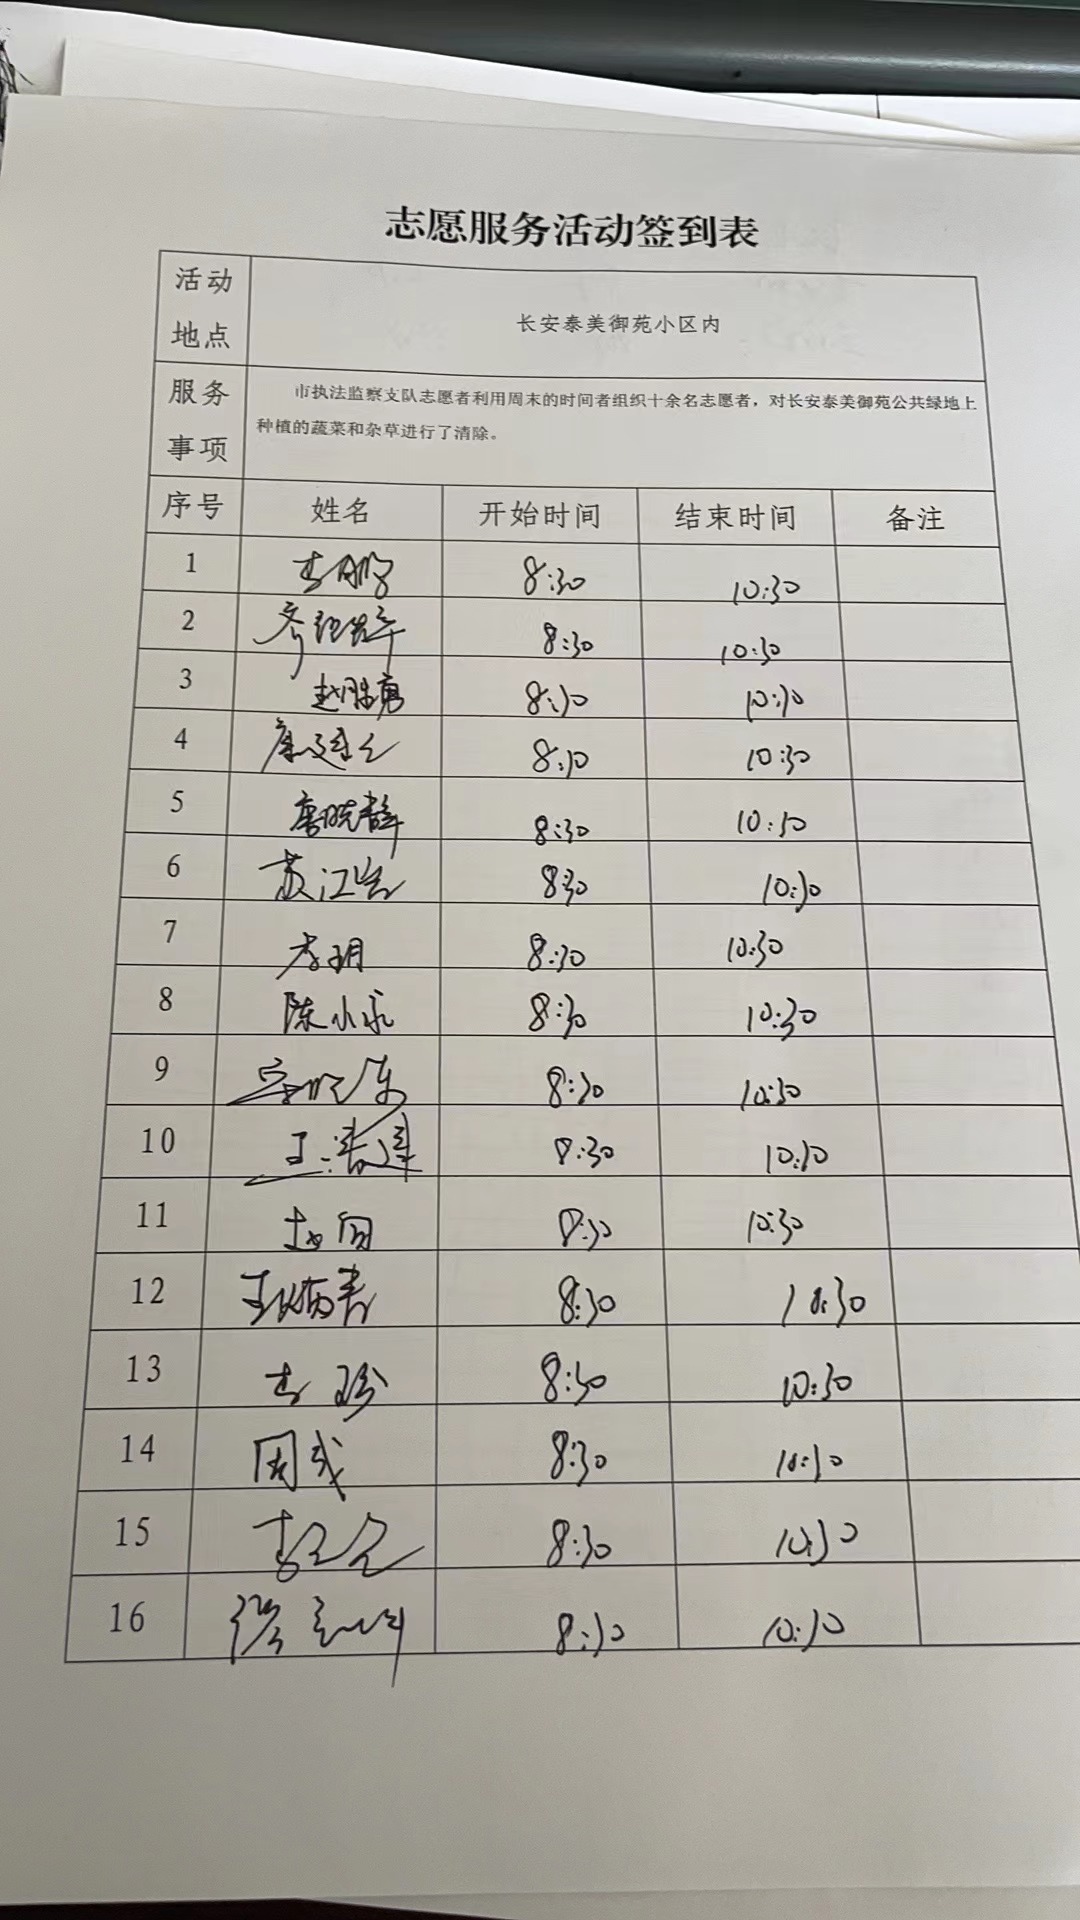 志愿服务活动签到表
活动地点 长安泰美御苑小区内
服务事项 市执法监察支队志愿者利用周末的时间者组织十余名志愿者，对长安泰美御苑公共绿地上
种植的蔬菜和杂草进行了清除。
序号 姓名 开始时间 结束时间 备注
1 8:30 10:30
2 8:30 10:30
3 赵胜勇 8:30 10:30
4 8:30 10:30
5 唐晓静 8:30 10:30
6 8:30 10:30
7 李玥 8:30 10:30
8 陈小永 8:30 10:30
9 8:30 10:30
10 8:30 10:30
11 8:30 10:30
12 8:30 10:30
13 8:30 10:30
14 8:30 10:30
15 8:30 10:30
16 8:30 10:30